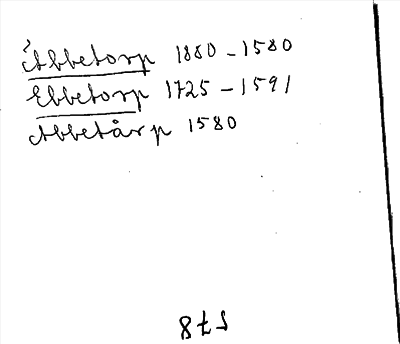 Abbetorp 1880-1580
Ebbetorp 1725-1591
Abbetårp 1580